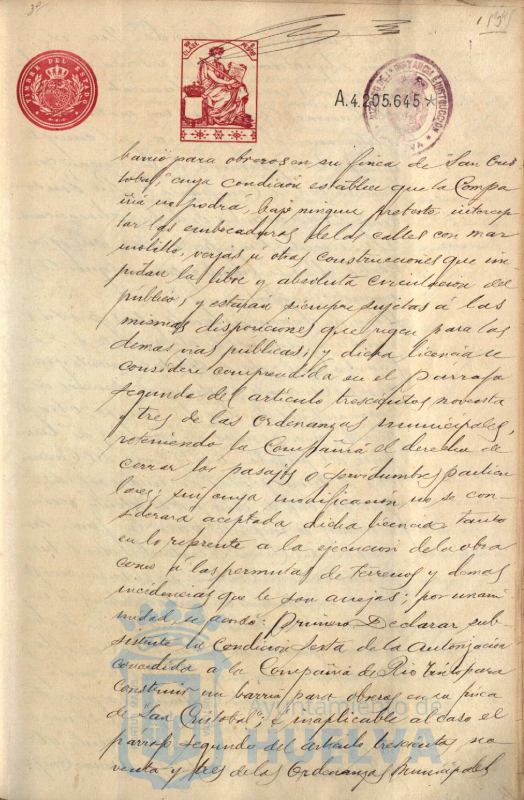 TIMBRE DEL ESTADO
CLASE
A.4.205.645*
barrio para obreros en su finca de "San Cris
tobal", cuya condición establece que la Compa
ñia no podrá, bajo ningun pretesto, intercep
tar las embocaduras de las calles con mar
molillo, verjas u otras construcciones que im
pidan la libre y absoluta circulacion del
publico, y estarán siempre sujetas á las
mismas disposiciones que rigen para las
demas vias publicas; y dicha licencia se
considere comprendida en el parrafo
segundo del articulo trescientos noventa
y tres de las Ordenanzas municipales,
reteniendo la Compañia el derecho de
cerrar los pasajes ó servidumbres particu
lares; sin cuya modificación no se con
siderará aceptada dicha licencia tanto
en lo referente a la ejecucion de la obra
como á las permutas de terrenos y demas
incidencias que le son anejas; por unani
midad, se acordó: Primero Declarar sub-
sistente la Condicion sesta de la Autorizacion
concedida a la Compañia de Rio Tinto para
construir un barrio para obreros en su finca
de "San Cristobal"; é inaplicable al caso el
parrafo segundo del articulo trescientos no
venta y tres de las Ordenanzas Municipales
Ayuntamiento de
HUELVA